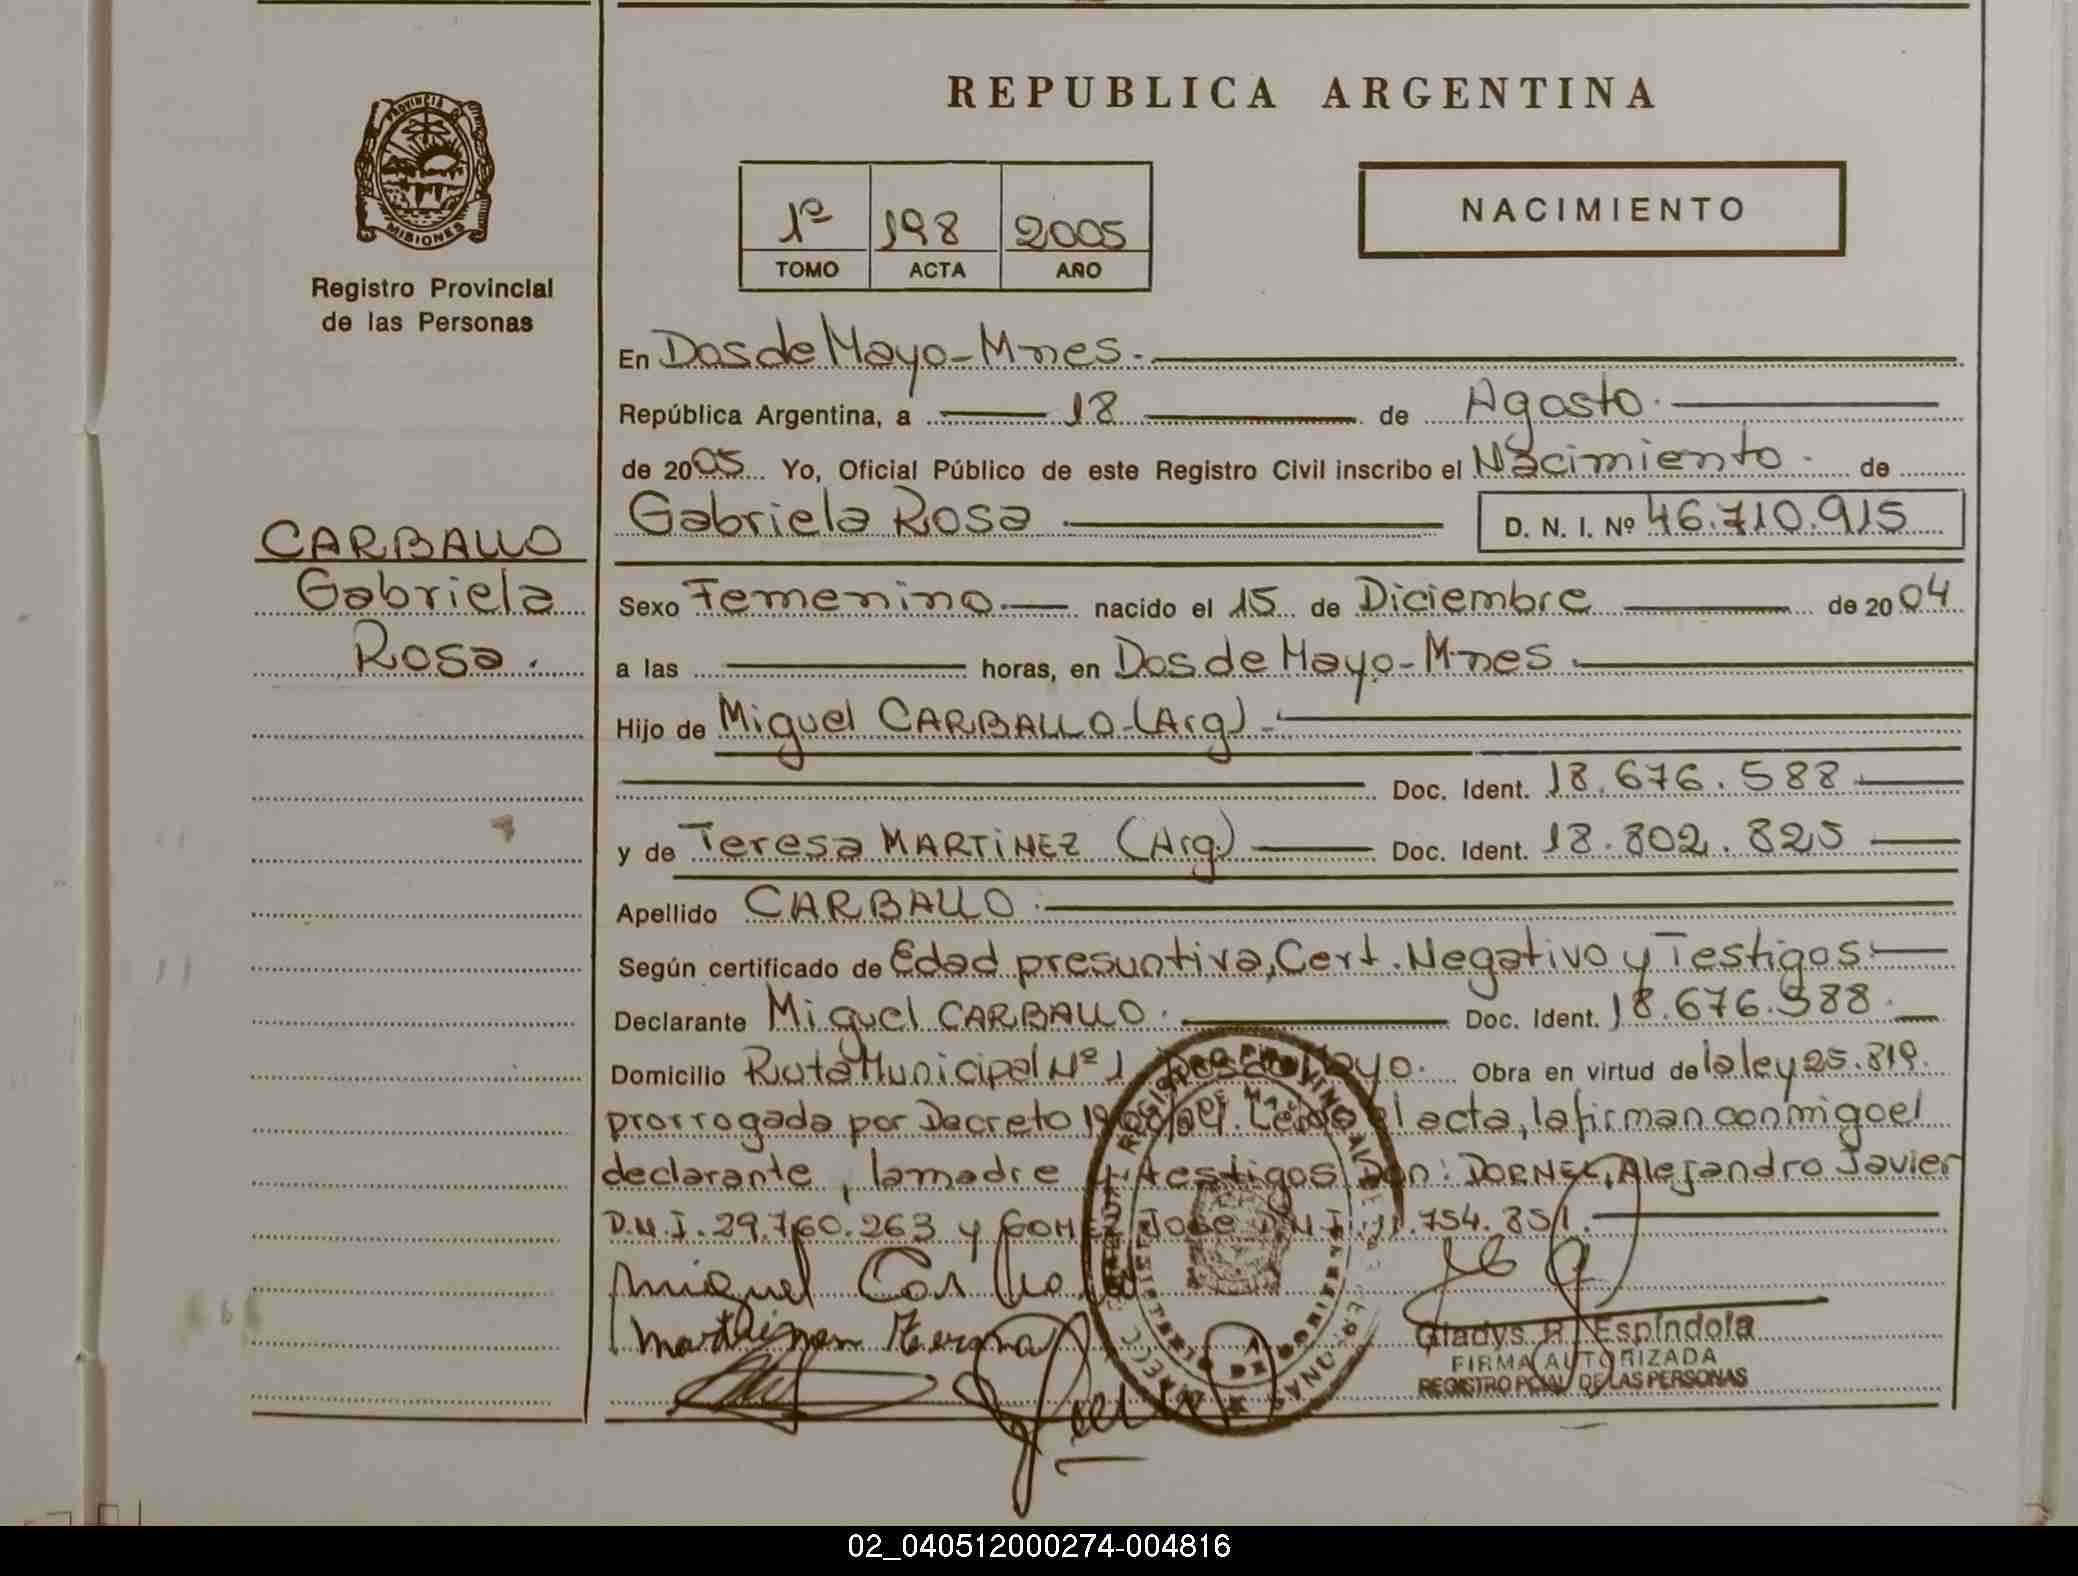 REPUBLICA ARGENTINA
PROVINCIA DE
MISIONES
Registro Provincial
de las Personas
1º 198 2005
TOMO ACTA AÑO
NACIMIENTO
En Dos de Mayo - Mnes.
República Argentina, a 18 de Agosto.
de 2005 Yo, Oficial Público de este Registro Civil inscribo el Nacimiento. de
Gabriela Rosa D. N. I. Nº 46.710.915
CARBALLO
Gabriela
Rosa.
Sexo Femenino nacido el 15 de Diciembre de 2004
a las horas, en Dos de Mayo - Mnes
Hijo de Miguel CARBALLO - (Arg)
Doc. Ident. 18.676.588
y de Teresa MARTINEZ (Arg) Doc. Ident. 18.802.825
Apellido CARBALLO
Según certificado de Edad presuntiva, Cert. Negativo y Testigos
Declarante Miguel CARBALLO. Doc. Ident. 18.676.588.
Domicilio Ruta Municipal Nº 1 Dos de Mayo. Obra en virtud de la ley 25.819.
prorrogada por Decreto Leida el acta, la firman conmigo el
declarante, la madre y testigos Don: DORNEL, Alejandro Javier
D.N.I. 29.760.263 y GOMEZ Jose D.N.I. 11.754.851.
Miguel Carballo
Gladys Espíndola
FIRMA AUTORIZADA
REGISTRO PCIAL DE LAS PERSONAS
02_040512000274-004816